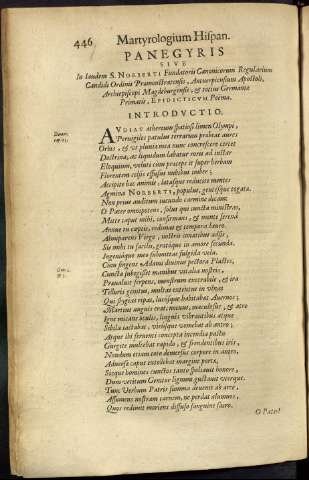 446 Martyrologium Hispan.
PANEGYRIS
SIVE
In Laudem S. NORBERTI Fundatoris Canonicorum Regularium
Candidi Ordinis Præmonstratensis, Antuerpiensium Apostoli,
Archiepiscopi Magdeburgensis, & totius Germaniæ
Primatis, EPIDICTICVM Poëma.
INTRODVCTIO.
AVDIAT æthereum spatiosi limen Olympi,
Peruigiles patulus terrarum probeat aures
Orbis, & vt pluuia mea nunc concrescere
Doctrina, ac liquidum labatur roris ad instar
Eloquium, veluti cùm præceps it super herbam
Florentem celsis effusus nubibus imber;
Accipite hæc animis, lætasque reducite mentes
Agmina NORBERTI, populus, gensque togata.
Non priùs auditum iucundo carmine dicam
O Pater omnipotens, solus qui cuncta ministras,
Mitte caput mihi, confirmans, & mente serenâ
Annue
Almaparens Virgo, nostris conatibus adsis,
Sis mihi tu facilis, gratisque in amore secunda.
Ingeniique mei submittas fulgida vela.
Cùm fingeret Adamo diuinus pectora Plastes,
Cuncta subegisset manibus vitalia nostris,
Præualuit serpens, monstrum execrabile, & ira
Telluris genitus, multas extentus in vlnas
Qui fregit ripas, lucisque habitabat Auernus;
Martius anguis erat, minius, maculosus, & atro
Igne micans oculis, linguis vibrantibus atque
Sibila iactabat, virúsque vomebat ab antro;
Atque ibi feruenti concepta incendia pastu
Gurgite mulcebat rapido, & frondentibus iris,
Nondum etiam toto demersus corpore in antro,
Aduersa caput extollebat margine porta,
Sicque homines cunctos tanto spoliauit honore,
Dum vetitum Genitor lignum gustauit vterque.
Tunc Verbum Patris summa deuenit ab arce,
Assumens nostram carnem, ne perdat alumnos,
Quos redimit moriens diffuso sanguine sacro.
O Pater